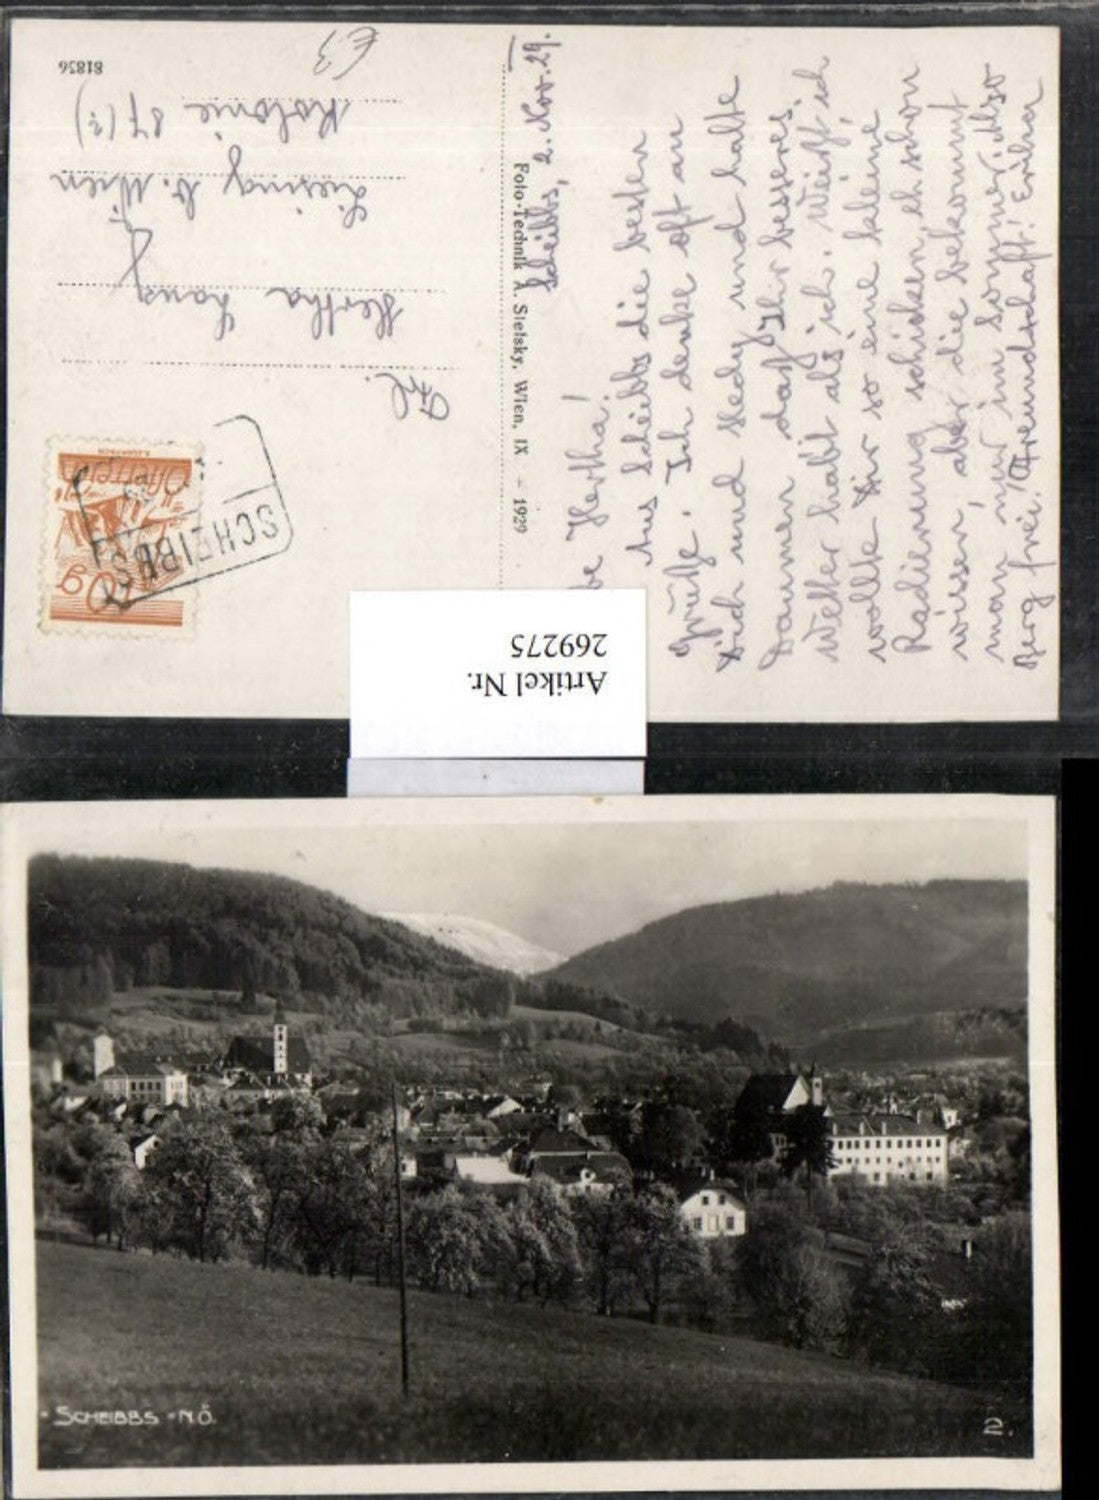 81856
£3
Frl.
Hertha Lang
Liesing b. Wien
Kolonie 87 (?)
Österreich
SCHEIBBS
Foto-Technik A. Stefsky, Wien, IX - 1929
Scheibbs, 2. Nov. 29.
be Hertha!
Aus Scheibbs die besten
Grüße. Ich denke oft an
Dich und Hedy und halte
Daumen daß Ihr besseres
Wetter habt als ich. Weißt, ich
wollte Dir so eine kleine
Radierung schicken, eh schon
wissen, aber die bekommt
man nur im Sommer. Also
Berg frei! Freundschaft! Erika
Artikel Nr.
269275
SCHEIBBS N.Ö.
2.